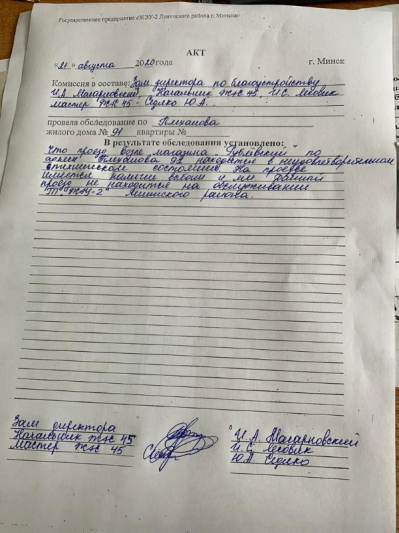 Государственное предприятие «ЖЭУ-2 Ленинского района г. Минска»
АКТ
"21" августа 2020 года г. Минск
Комиссия в составе: Зам директора по благоустройству
И.А. Магарновский, Начальник ЖЭК 45, И.С. Лесовик
мастер ЖЭК 45 - Седлко Ю.А.
провела обследование по Плеханова
жилого дома № 91 квартиры №
В результате обследования установлено:
Что проезд возле магазина "Рублёвский" по
адресу Плеханова 91 находится в неудовлетворительном
состоянии. На проезде
имеется наличие и ям. Данный
проезд не находится на обслуживании
"ЖЭУ-2" Ленинского района.
Зам директора И.А. Магарновский
Начальник ЖЭК 45 И.С. Лесовик
Мастер ЖЭК 45 Ю.А. Седлко